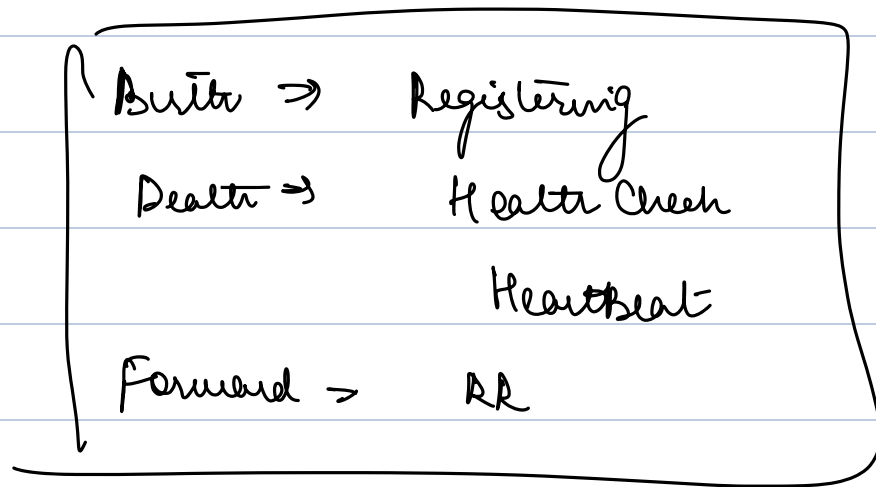 Birth ⇒ Registering
Death ⇒ Health Check
HeartBeat
Forward → RR